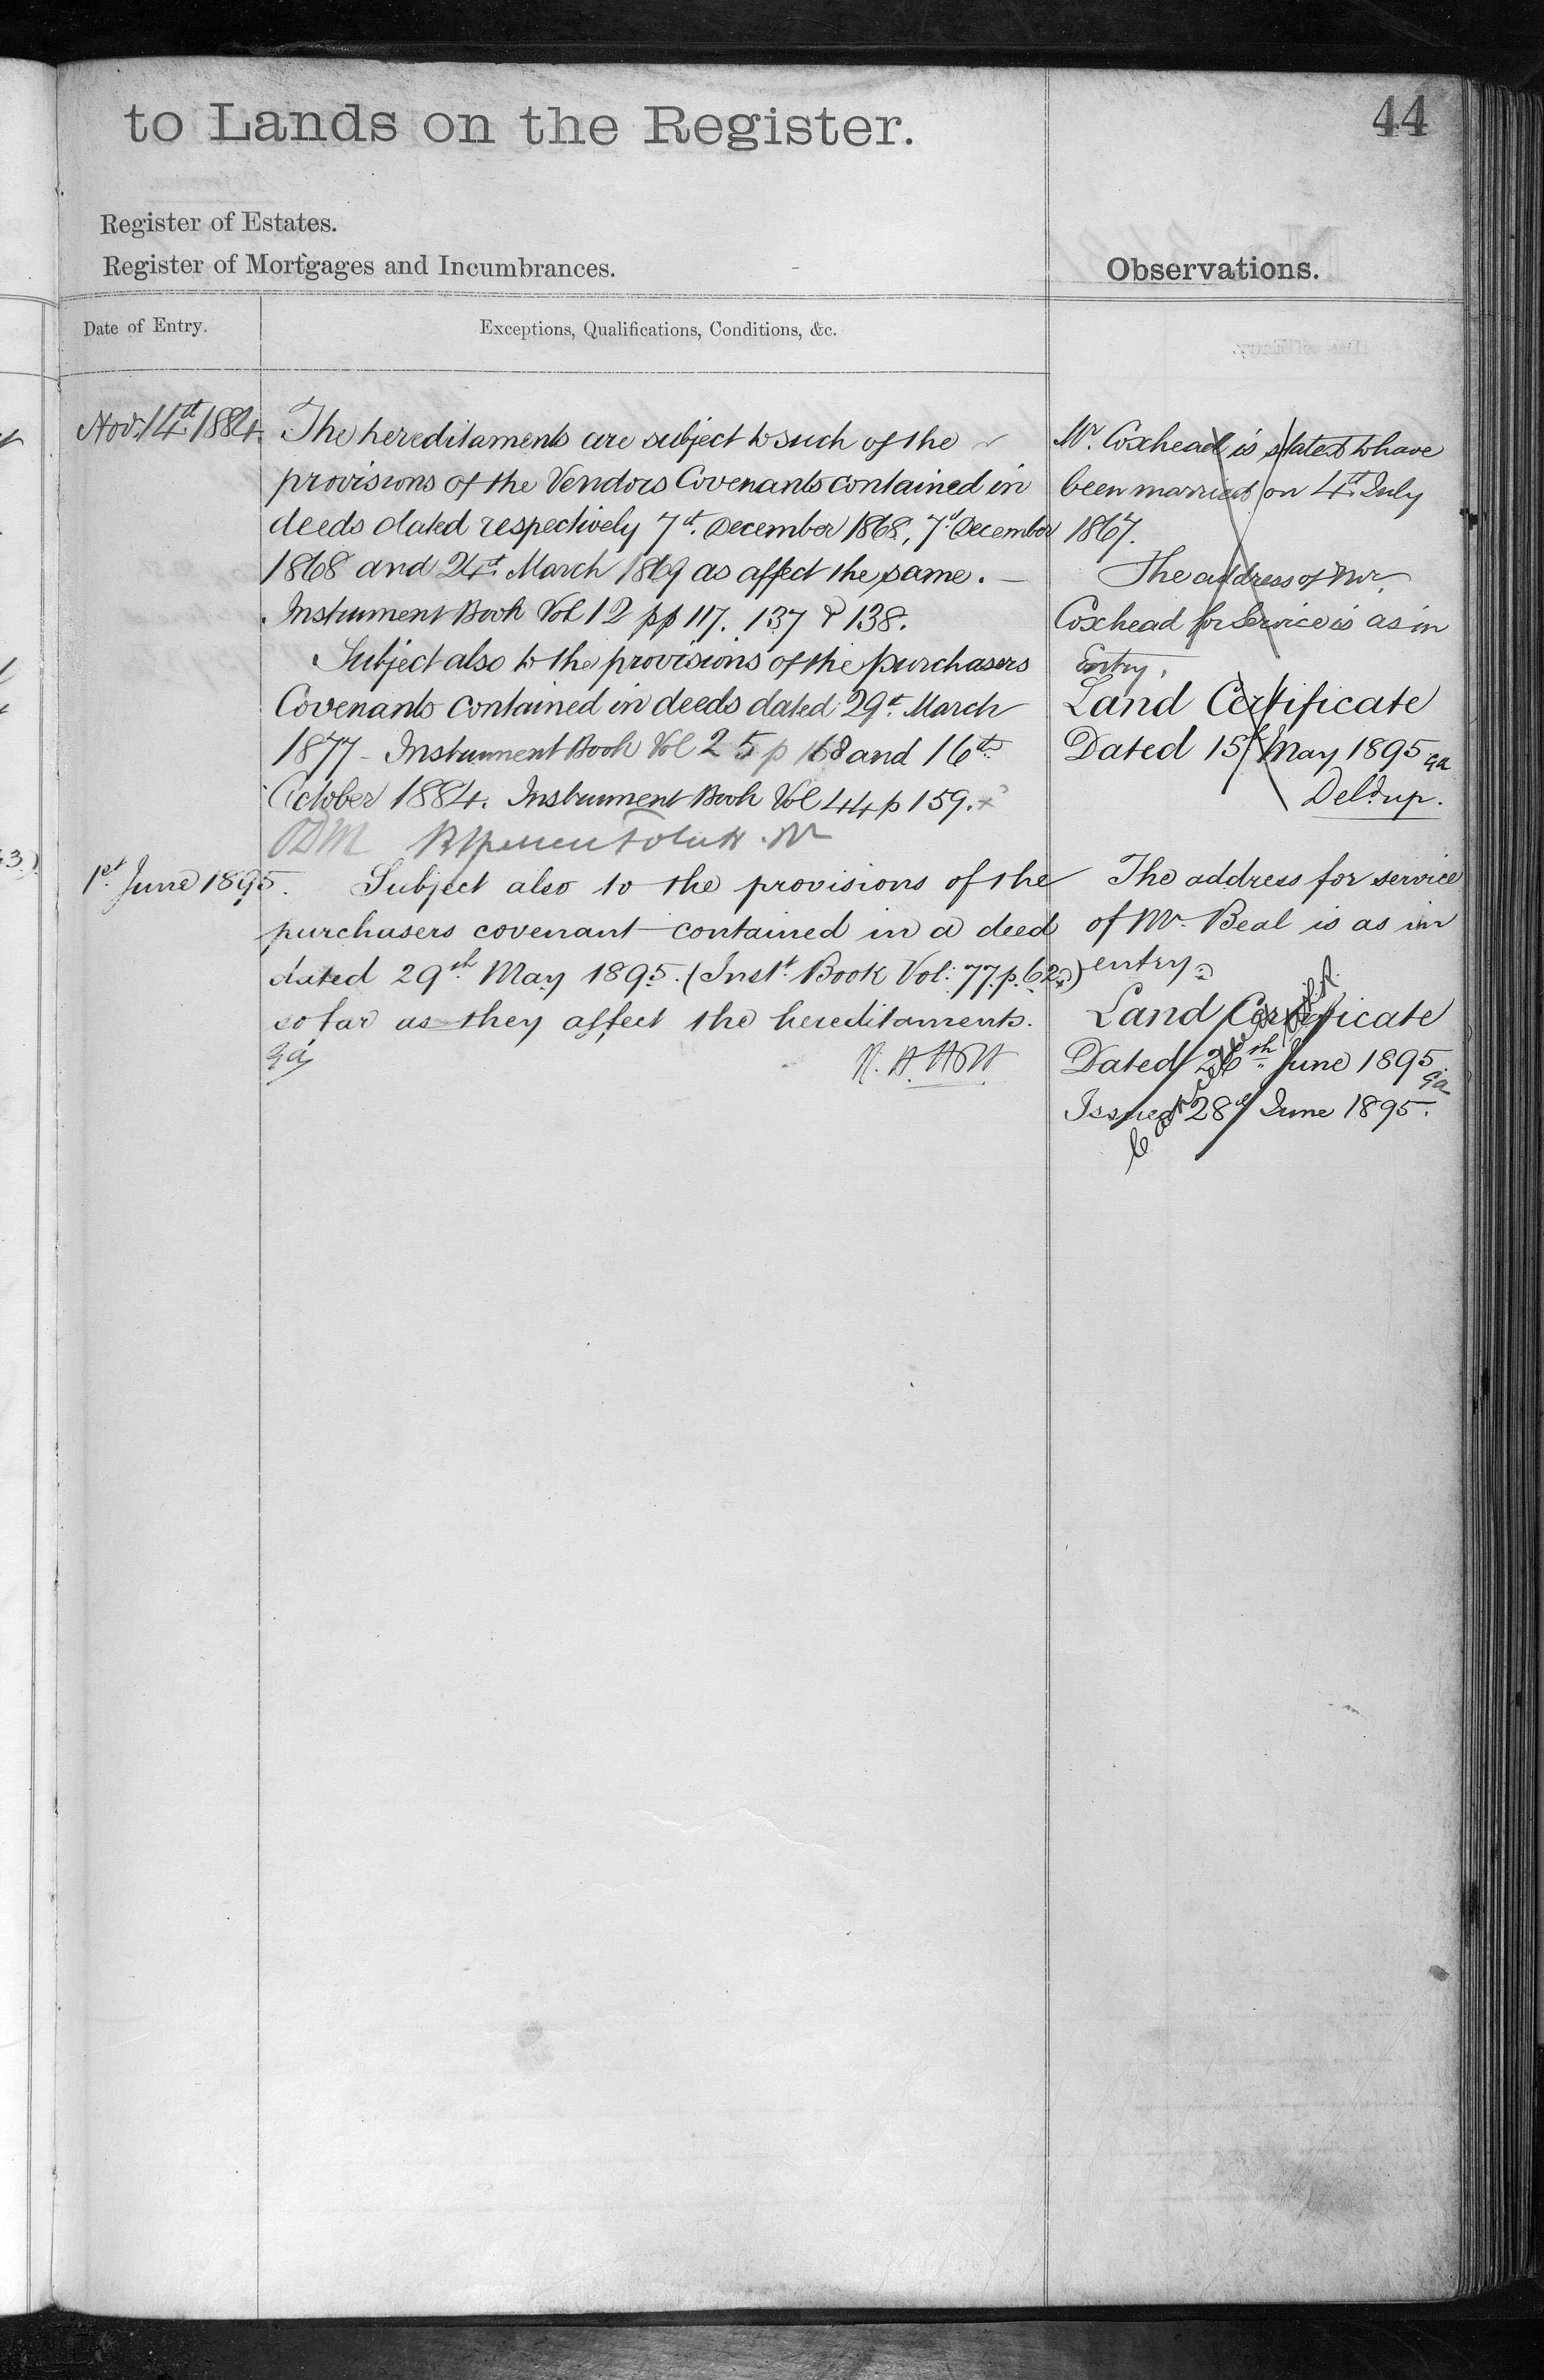 to Lands on the Register.
44
Register of Estates.
Register of Mortgages and Incumbrances.
Observations.
Date of Entry.
Exceptions, Qualifications, Conditions, &c.
Nov. 14th 1884.
The hereditaments are subject to such of the
provisions of the Vendors Covenants contained in
deeds dated respectively 7th December 1868, 7th December
1868 and 24th March 1869 as affect the same. —
Instrument Book Vol 12 pp 117. 137 & 138.
Subject also to the provisions of the purchasers
Covenants contained in deeds dated 29th March
1877 - Instrument Book Vol 25 p 168 and 16th
October 1884. Instrument Book Vol 44 p 159.
Mr. Coxhead is stated to have
been married on 4th July
1867.
The address of Mr.
Coxhead for Service is as in
Entry.
Land Certificate
Dated 15th May 1895 ga
Deld. up.
1st June 1895.
Subject also to the provisions of the
purchasers covenant contained in a deed
dated 29th May 1895. (Inst. Book Vol: 77. p. 62.)
so far as they affect the hereditaments.
ga
The address for service
of Mr. Beal is as in
entry.
Land Certificate
Dated 26th June 1895
ga
Issued 28th June 1895.